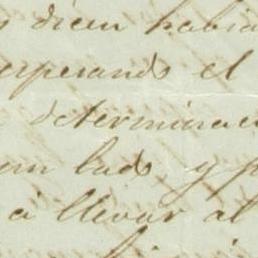 y dicen habia
esperando el
determinac
un lado, y p
a llevar al